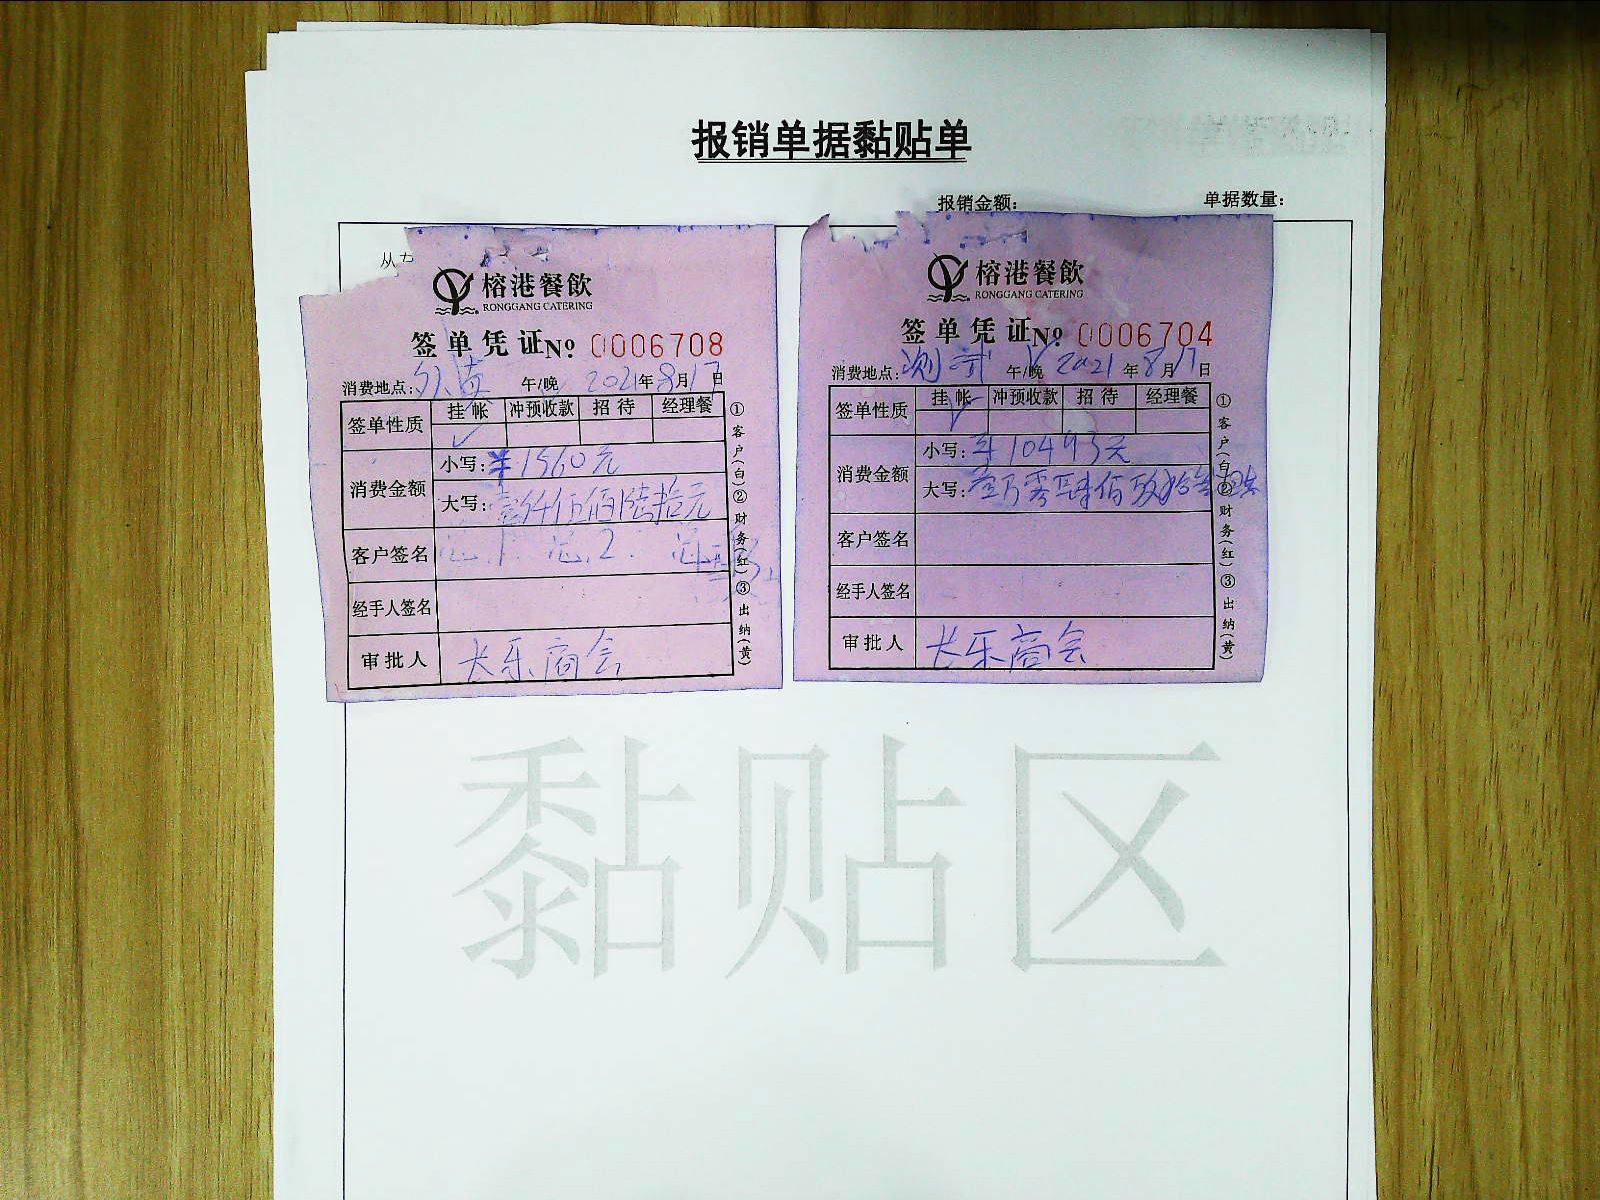 报销单据黏贴单
报销金额：
单据数量：
从
榕港餐飲
RONGGANG CATERING
签单凭证№ 0006708
消费地点： 午/晚 2021年8月17日
签单性质 挂帐 冲预收款 招待 经理餐
✓
消费金额
小写：¥1560元
大写：壹仟伍佰陆拾元
客户签名
经手人签名
审批人 长乐商会
①客户(白)②财务(红)③出纳(黄)
榕港餐飲
RONGGANG CATERING
签单凭证№ 0006704
消费地点： 午/晚 2021年8月17日
签单性质 挂帐 冲预收款 招待 经理餐
✓
消费金额
小写：¥10493元
大写：壹万零肆佰玖拾叁元
客户签名
经手人签名
审批人 长乐商会
①客户(白)②财务(红)③出纳(黄)
黏贴区